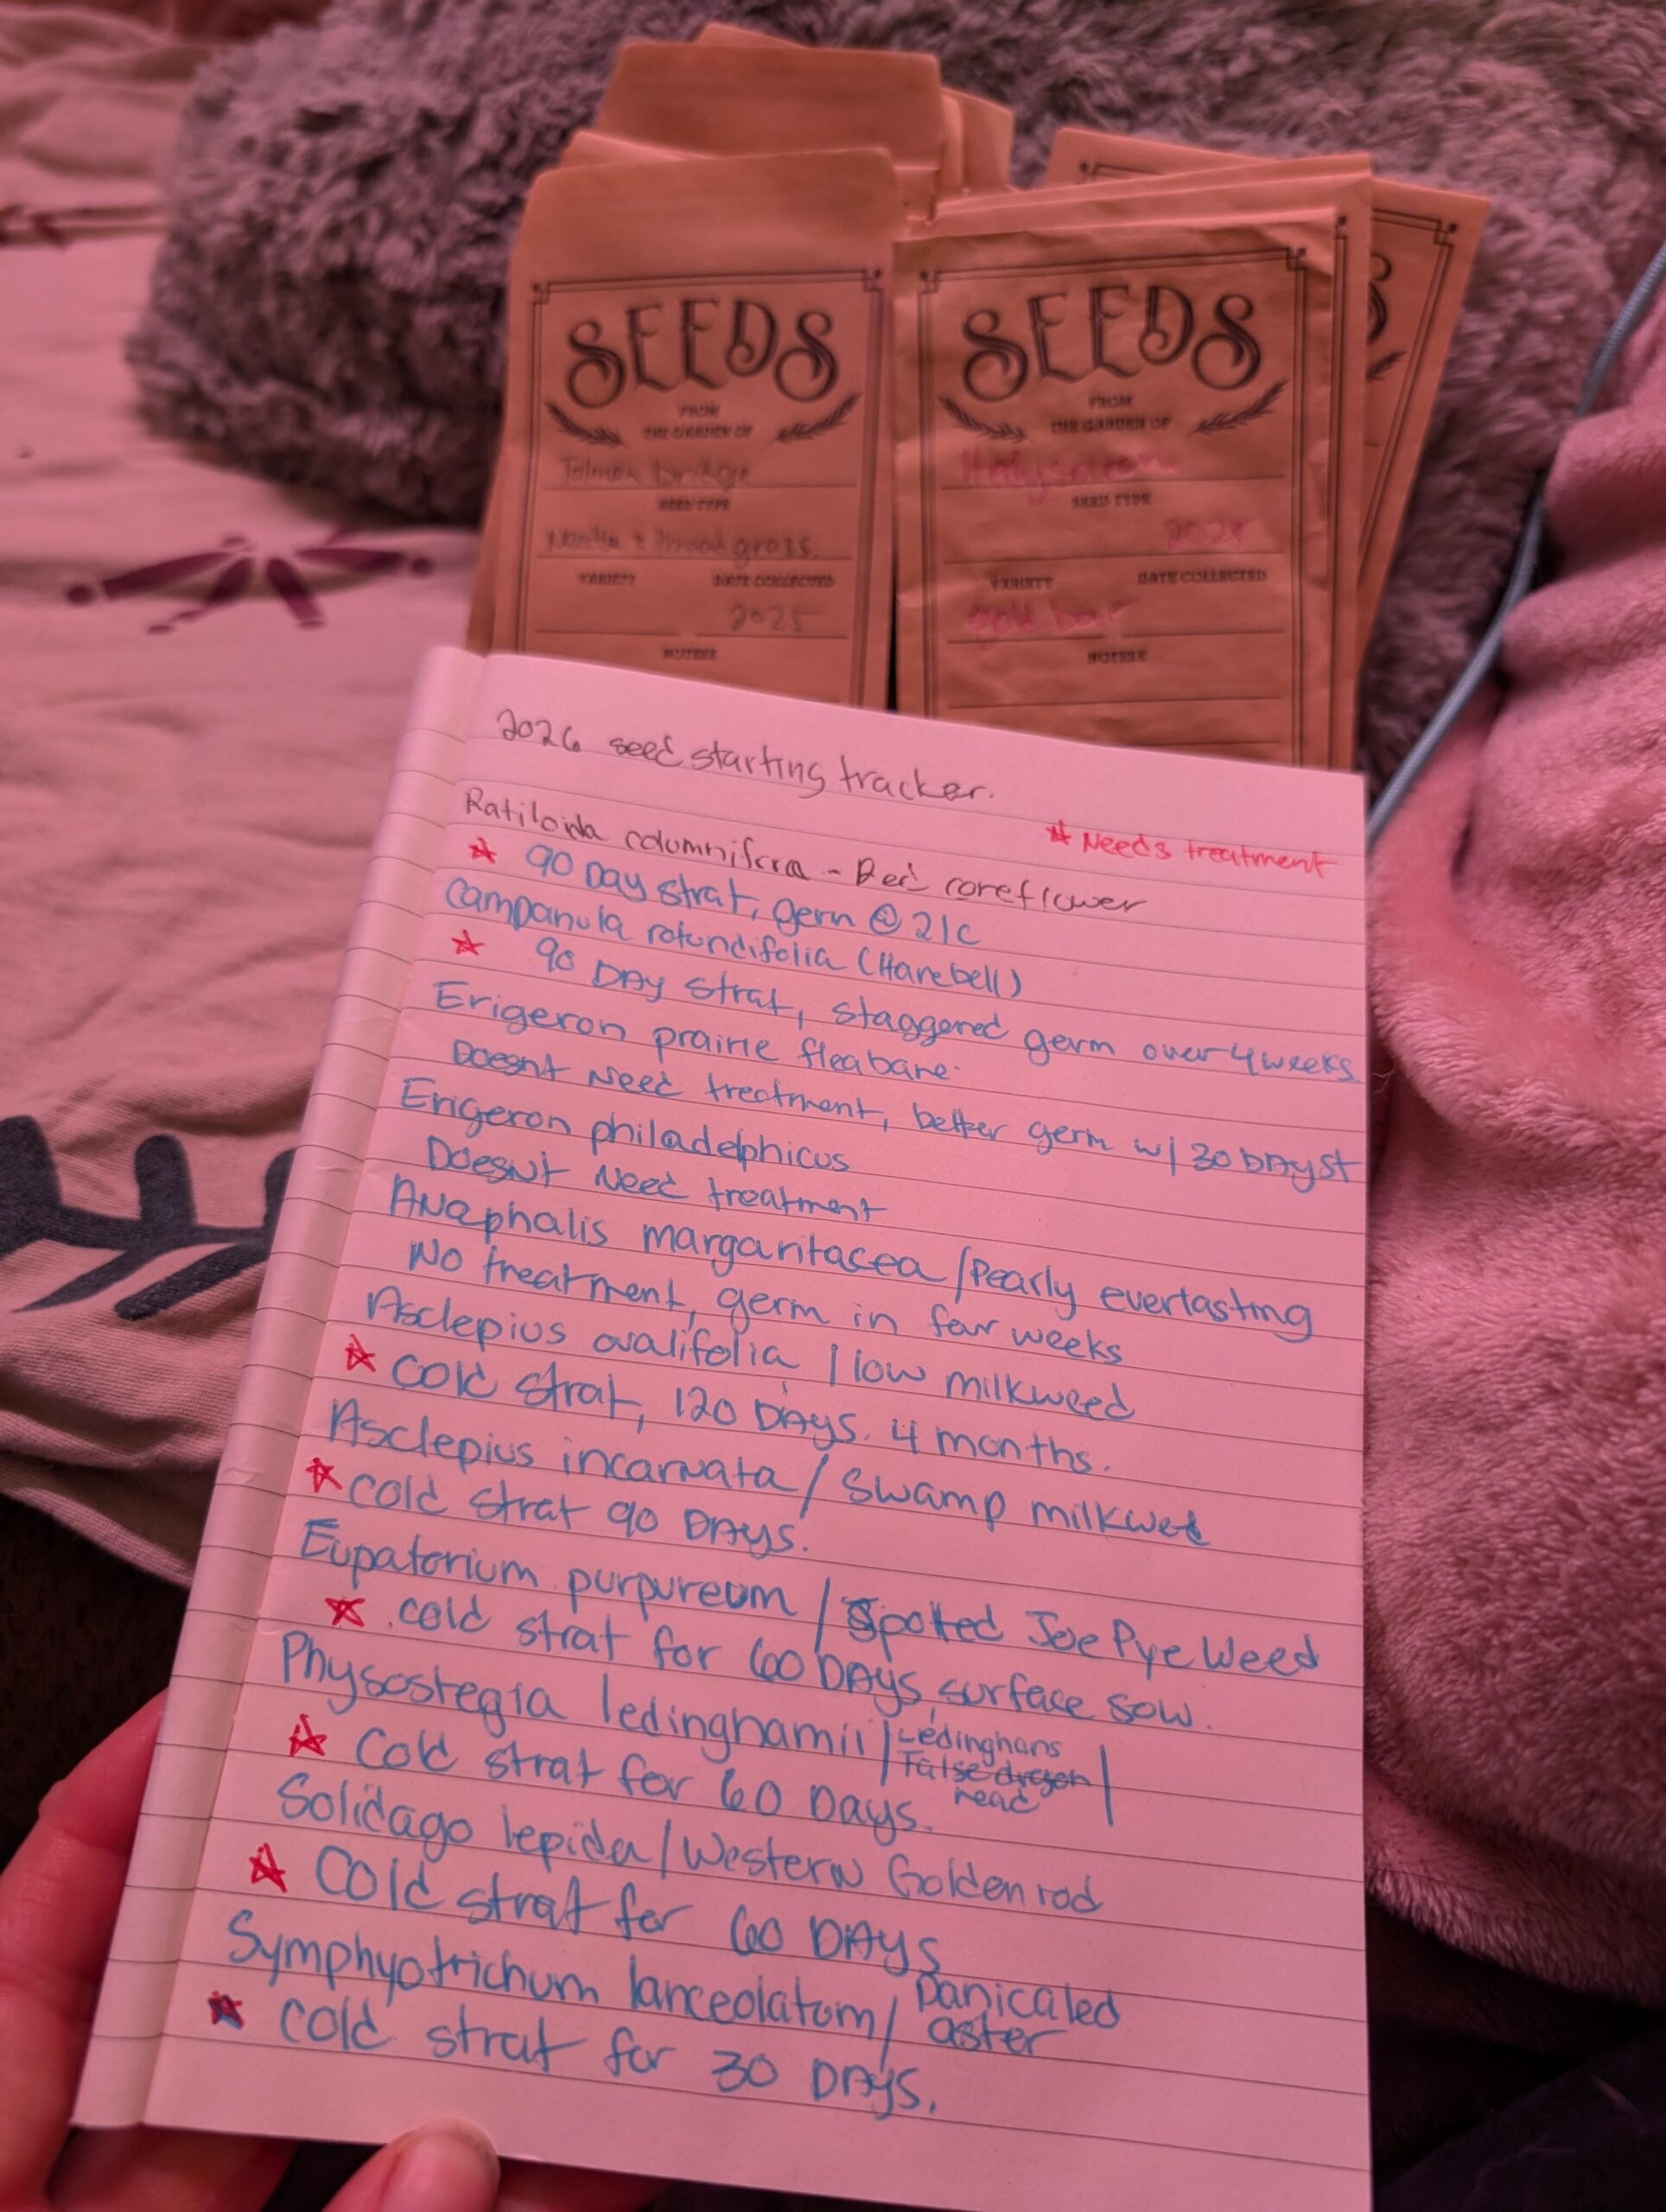 SEEDS
FROM
THE GARDEN OF
bridge
SEED TYPE
grass.
VARIETY DATE COLLECTED
2025
NOTES:
SEEDS
FROM
THE GARDEN OF
SEED TYPE
VARIETY DATE COLLECTED
NOTES:
2026 seed starting tracker.
☆ Needs treatment
Ratiloida columnifera - Red coneflower
☆ 90 Day strat, germ @ 21c
Campanula rotundifolia (Harebell)
☆ 90 DAY strat, staggered germ over 4 weeks
Erigeron prairie fleabane.
Doesnt Need treatment, better germ w/ 30 DAY St
Erigeron philadelphicus
Doesnt Need treatment
Anaphalis margaritacea / Pearly everlasting
No treatment, germ in few weeks
Asclepius ovalifolia / low milkweed
☆ cold strat, 120 DAYS. 4 months.
Asclepius incarnata / Swamp milkwed
☆ cold strat 90 DAYS.
Eupatorium purpureum / Spotted Joe Pye Weed
☆ cold strat for 60 DAYS, surface sow.
Physostegia ledinghamii / Ledinghans
False dragon
head
☆ Cold strat for 60 Days.
Solidago lepida / Western Goldenrod
☆ Cold strat for 60 DAYS
Symphyotrichum lanceolatum / panicaled
aster
☆ cold strat for 30 DAYS.